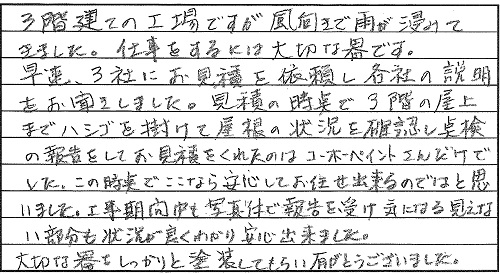 3階建ての工場ですが風向きで雨が浸みて
きました。仕事をするには大切な器です。
早速、3社にお見積を依頼し各社の説明
をお聞きしました。見積の時点で3階の屋上
までハシゴを掛けて屋根の状況を確認し点検
の報告をしてお見積をくれたのはコーホーペイントさんだけで
した。この時点でここなら安心してお任せ出来るのではと思
いました。工事期間中も写真付で報告を受け気になる見えな
い部分も状況が良くわかり安心出来ました。
大切な器をしっかりと塗装してもらい有がとうございました。